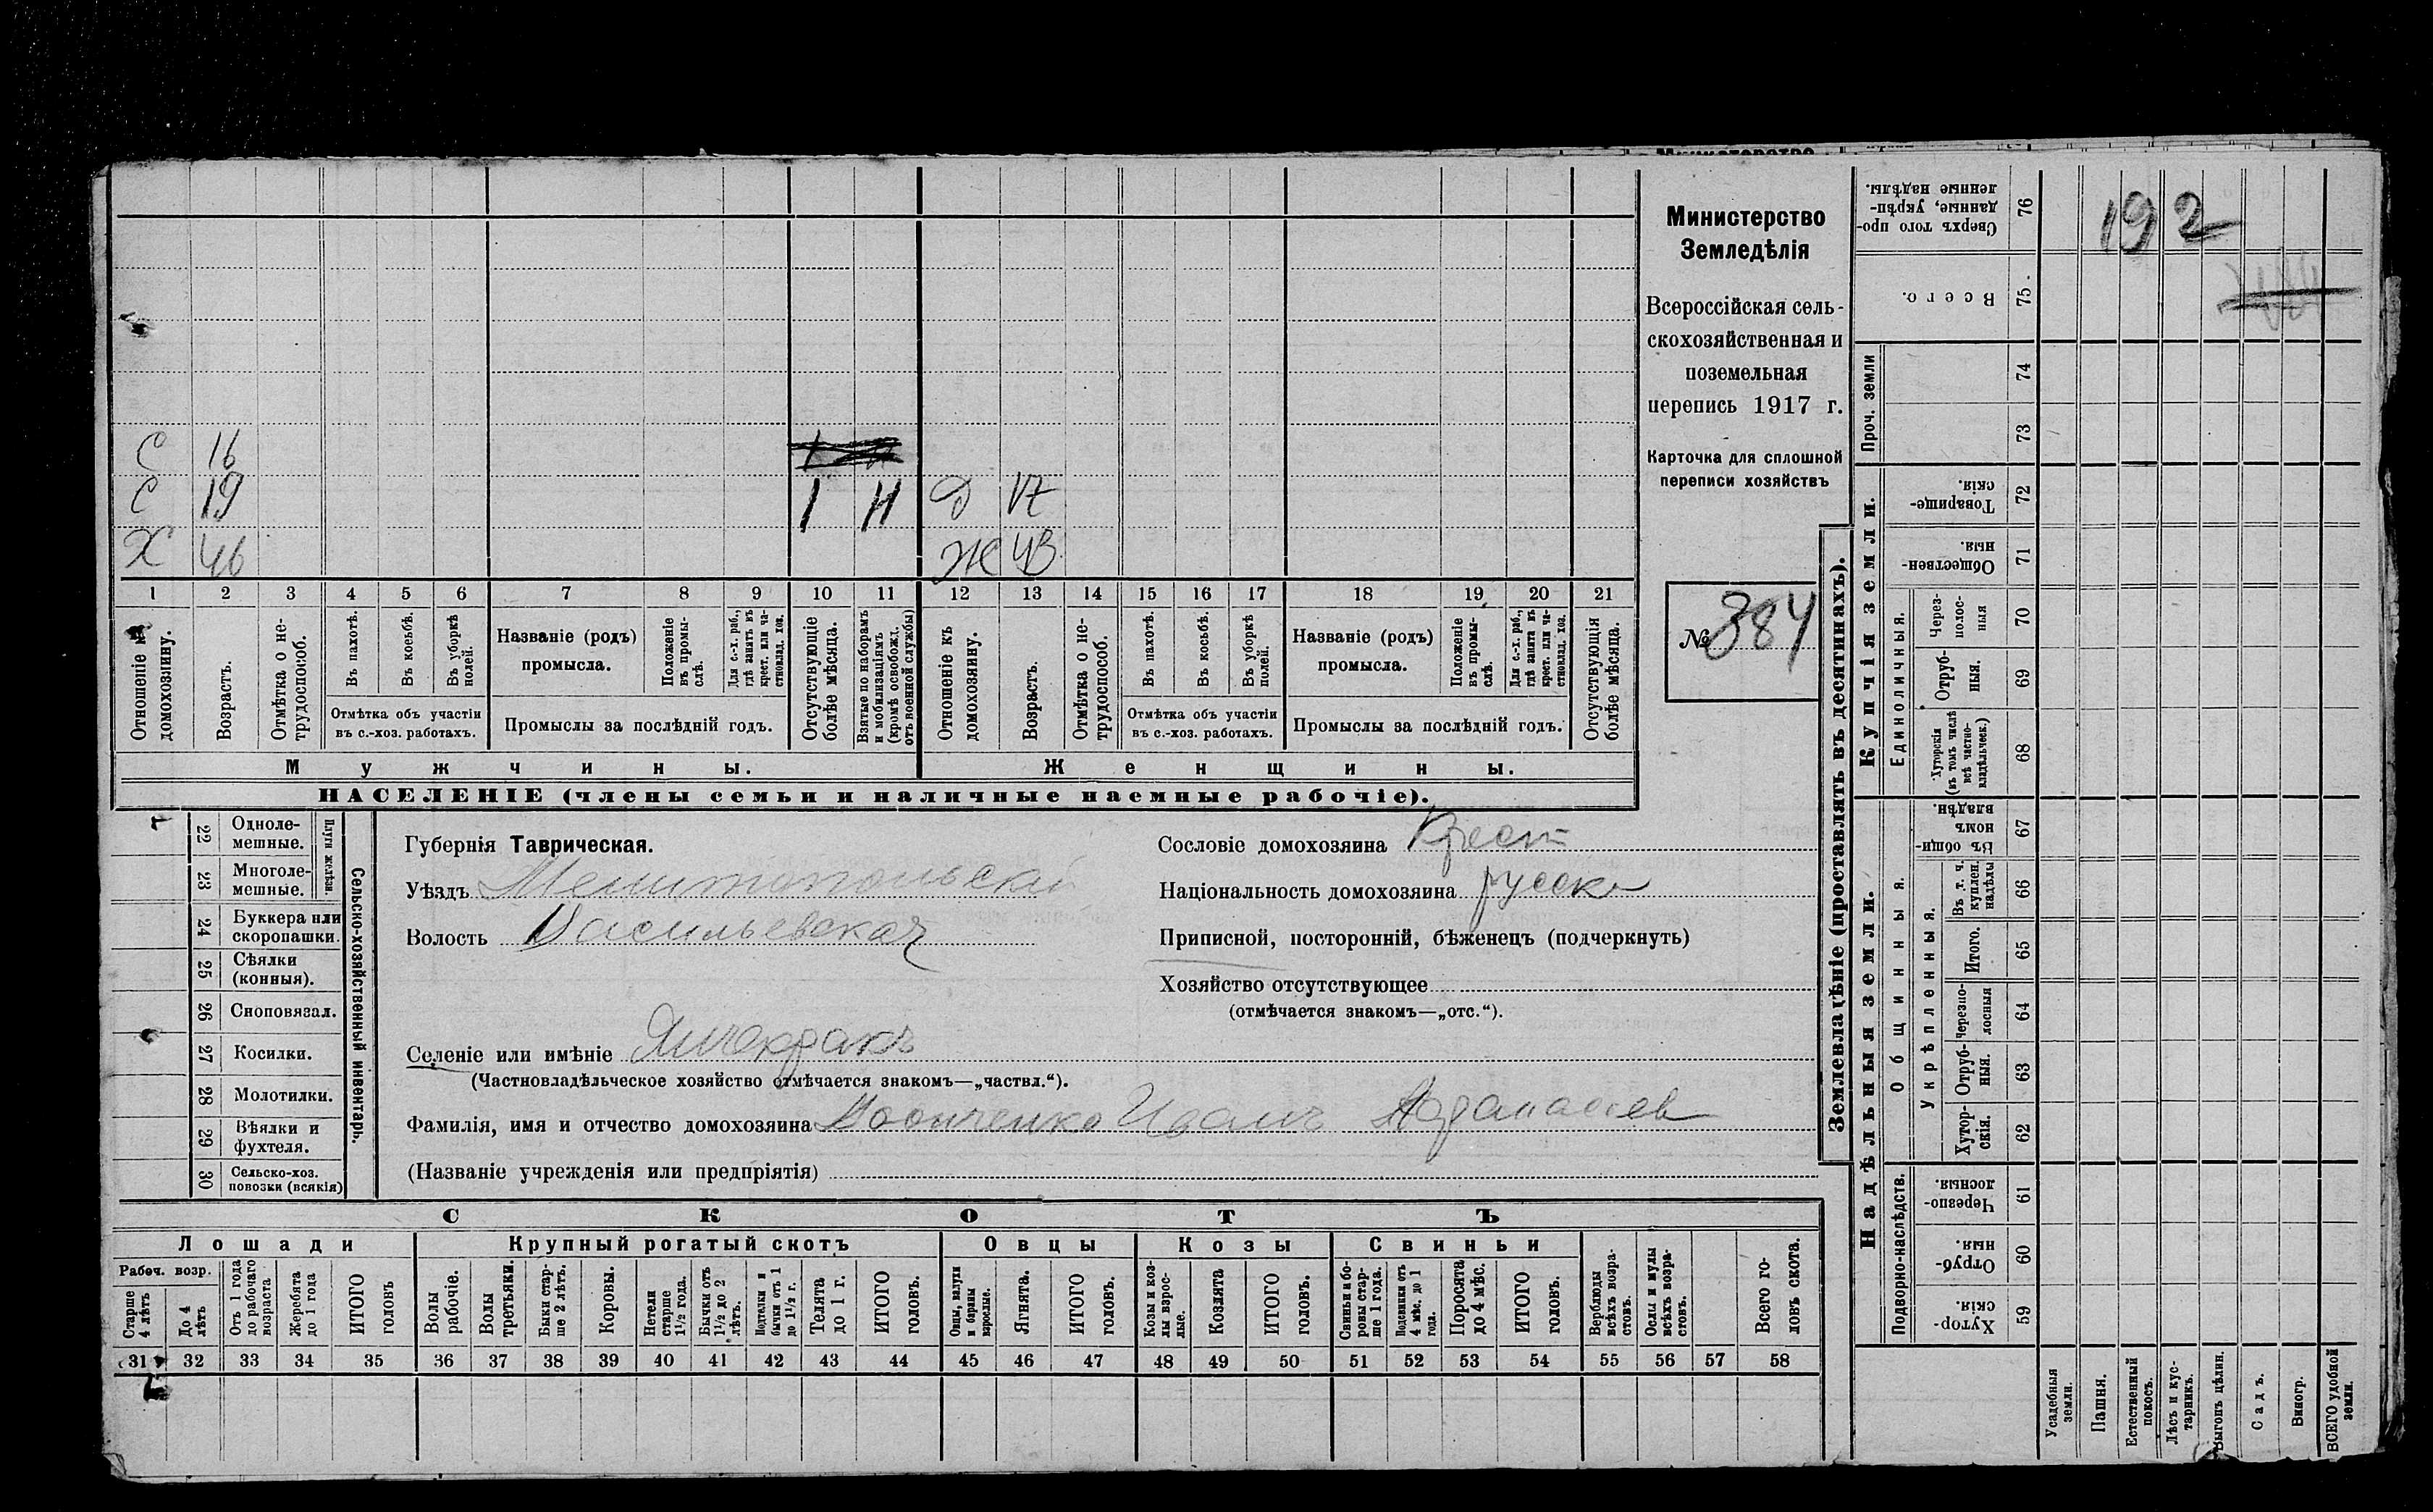 Министерство
Земледѣлія
Всероссійская сель-
скохозяйственная и
поземельная
перепись 1917 г.
Карточка для сплошной
переписи хозяйствъ
№ 384
С 16
С 19 1 Н Д 17
Х 46 Ж 43
1 2 3 4 5 6 7 8 9 10 11 12 13 14 15 16 17 18 19 20 21
Отношеніе къ домохозяину.
Возрастъ.
Отмѣтка о не-
трудоспособ.
Въ пахотѣ.
Въ косьбѣ.
Въ уборкѣ
полей.
Отмѣтка объ участіи
въ с.-хоз. работахъ.
Названіе (родъ)
промысла.
Положеніе
въ промы-
слѣ.
Для с.-х. раб.,
гдѣ занятъ въ
крест. или ча-
стновлад. хоз.
Промыслы за послѣдній годъ.
Отсутствующіе
болѣе мѣсяца.
Взятые по наборамъ
и мобилизаціямъ
(кромѣ освобожд.
отъ военной службы)
Отношеніе къ
домохозяину.
Возрастъ.
Отмѣтка о не-
трудоспособ.
Въ пахотѣ.
Въ косьбѣ.
Въ уборкѣ
полей.
Отмѣтка объ участіи
въ с.-хоз. работахъ.
Названіе (родъ)
промысла.
Положеніе
въ промы-
слѣ.
Для с.-х. раб.,
гдѣ занята въ
крест. или ча-
стновлад. хоз.
Промыслы за послѣдній годъ.
Отсутствующія
болѣе мѣсяца.
Мужчины. Женщины.
НАСЕЛЕНІЕ (члены семьи и наличные наемные рабочіе).
Сельско-хозяйственный инвентарь.
Плуги желѣзн.
22 Одноле-
мешные.
23 Многоле-
мешные.
24 Буккера или
скоропашки.
25 Сѣялки
(конныя).
26 Сноповязал.
27 Косилки.
28 Молотилки.
29 Вѣялки и
фухтеля.
30 Сельско-хоз.
повозки (всякія)
Губернія Таврическая.
Уѣздъ Мелитопольскій
Волость Васильевская
Селеніе или имѣніе Янчекракъ
(Частновладѣльческое хозяйство отмѣчается знакомъ—„частвл.“).
Фамилія, имя и отчество домохозяина Иванъ Афанасіев
(Названіе учрежденія или предпріятія)
Сословіе домохозяина Крест
Національность домохозяина русск
Приписной, посторонній, бѣженецъ (подчеркнуть)
Хозяйство отсутствующее
(отмѣчается знакомъ—„отс.“).
СКОТЪ
Лошади Крупный рогатый скотъ Овцы Козы Свиньи
Рабоч. возр.
Старше
4 лѣтъ
До 4
лѣтъ
Отъ 1 года
до рабочаго
возраста
Жеребята
до 1 года
ИТОГО
головъ
Волы
рабочіе.
Волы
третьяки.
Быки стар-
ше 2 лѣтъ.
Коровы.
Нетели
старше
1½ года.
Бычки отъ
1½ до 2
лѣтъ.
Подтелки и
бычки отъ 1
до 1½ г.
Телята
до 1 г.
ИТОГО
головъ.
Овцы, валухи
и бараны
взрослые.
Ягнята.
ИТОГО
головъ.
Козы и коз-
лы взрос-
лые.
Козлята
ИТОГО
головъ.
Свиньи и бо-
ровы стар-
ше 1 года.
Подсвинки отъ
4 мѣс. до 1
года.
Поросята
до 4 мѣс.
ИТОГО
головъ.
Верблюды
всѣхъ возра-
стовъ.
Ослы и мулы
всѣхъ возра-
стовъ.
Всего го-
ловъ скота.
31 32 33 34 35 36 37 38 39 40 41 42 43 44 45 46 47 48 49 50 51 52 53 54 55 56 57 58
Землевладѣніе (проставлять въ десятинахъ).
192
76 Сверхъ того про-
данные, укрѣп-
ленные надѣлы.
75 Всего.
Проч. земли
74
73
Купчія земли.
72 Товарище-
скія.
71 Обществен-
ныя.
Единоличныя.
70 Через-
полос-
ныя
69 Отруб-
ныя.
68 Хуторскія
(въ томъ числѣ
всѣ частно-
владѣльческ.)
Надѣльныя земли.
Общинныя.
67 Въ общи-
номъ
владѣн.
Укрѣпленныя.
66 Въ т. ч.
куплен.
надѣлы
65 Итого.
64 Черезпо-
лосныя
63 Отруб-
ныя.
62 Хутор-
скія.
Подворно-наслѣдств.
61 Черезпо-
лосныя.
60 Отруб-
ныя.
59 Хутор-
скія.
Усадебныя
земли.
Пашня.
Естественный
покосъ.
Лѣсъ и кус-
тарникъ.
Выгонъ цѣлин.
Садъ.
Виногр.
ВСЕГО удобной
земли.